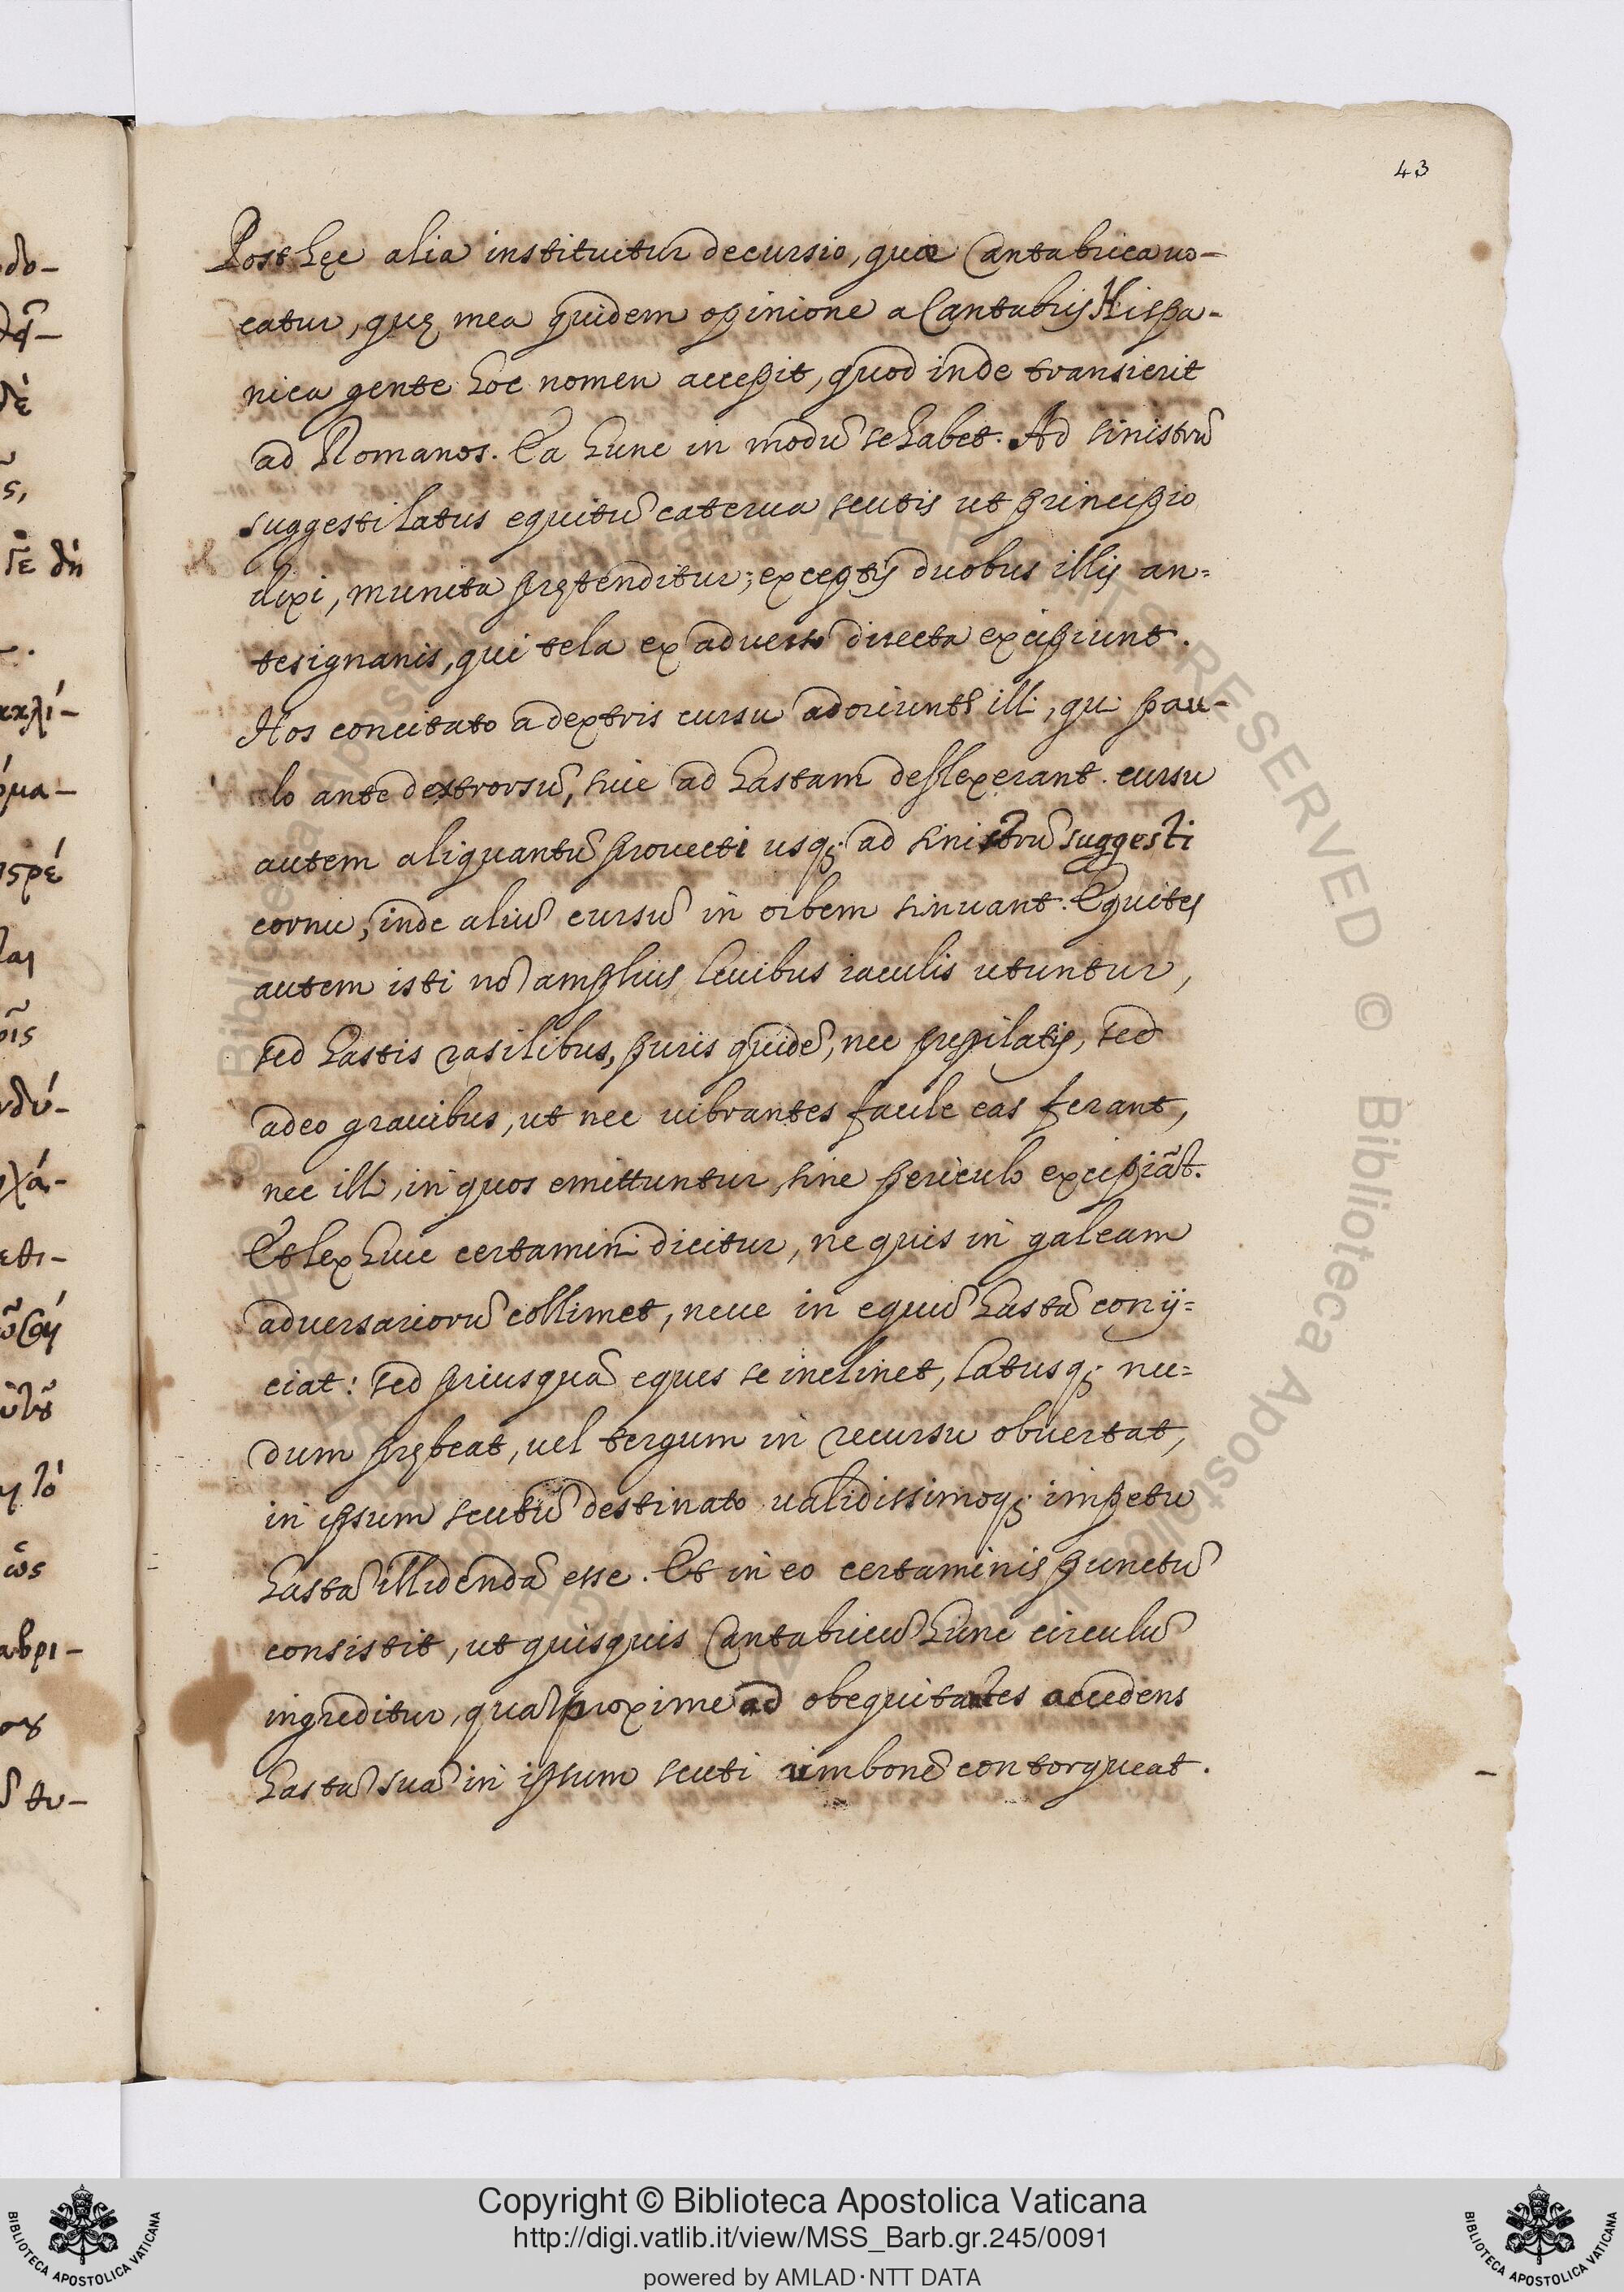 43
Post hęc alia instituitur decursio, quæ Cantabrica uo-
catur, quę mea quidem opinione a Cantabris Hispa-
nica gente hoc nomen accepit, quod inde transierit
ad Romanos. Ea hunc in modũ se habet. Ad sinistrũ
suggesti latus equitũ caterua scutis ut principio
dixi, munita prętenditur; exceptis duobus illis an=
tesignanis, qui tela ex aduerso directa excipiunt.
Hos concitato a dextris cursu adoriuntr illi, qui pau-
lo ante dextrorsũ, siue ad hastam deflexerant. cursu
autem aliquantũ prouecti usq; ad sinistrũ suggesti
cornu, inde aliũ cursũ in orbem sinuant. Equites
autem isti nõ amplius leuibus iaculis utuntur,
sed hastis rasilibus, puris quidẽ, nec prępilatis, sed
adeo grauibus, ut nec uibrantes facile eas ferant,
nec illi, in quos emittuntur, sine periculo excipiãt.
Et lex huic certamini dicitur, ne quis in galeam
aduersariorũ collimet, neue in equũ hastã conij=
ciat: sed priusquã eques se inclinet, latusq; nu=
dum prębeat, uel tergum in recursu obuertat,
in ipsum scutũ destinato ualidissimoq; impetu
hastã illidendã esse. Et in eo certaminis punctũ
consistit, ut quisquis Cantabricũ hunc circulũ
ingreditur, quã proxime ad obequitantes accedens
hastã suã in ipsum scuti umbonẽ contorqueat.
δο-
δὲ
ς,
κκλί-
όμα-
σρέ
οῖς
νδύ-
χά-
εθι-
ὡς
αβρι-
θυ-
© Biblioteca Apostolica Vaticana ALL RIGHTS RESERVED © Biblioteca Apostolica Vaticana
BIBLIOTECA APOSTOLICA VATICANA
Copyright © Biblioteca Apostolica Vaticana
http://digi.vatlib.it/view/MSS_Barb.gr.245/0091
powered by AMLAD·NTT DATA
BIBLIOTECA APOSTOLICA VATICANA